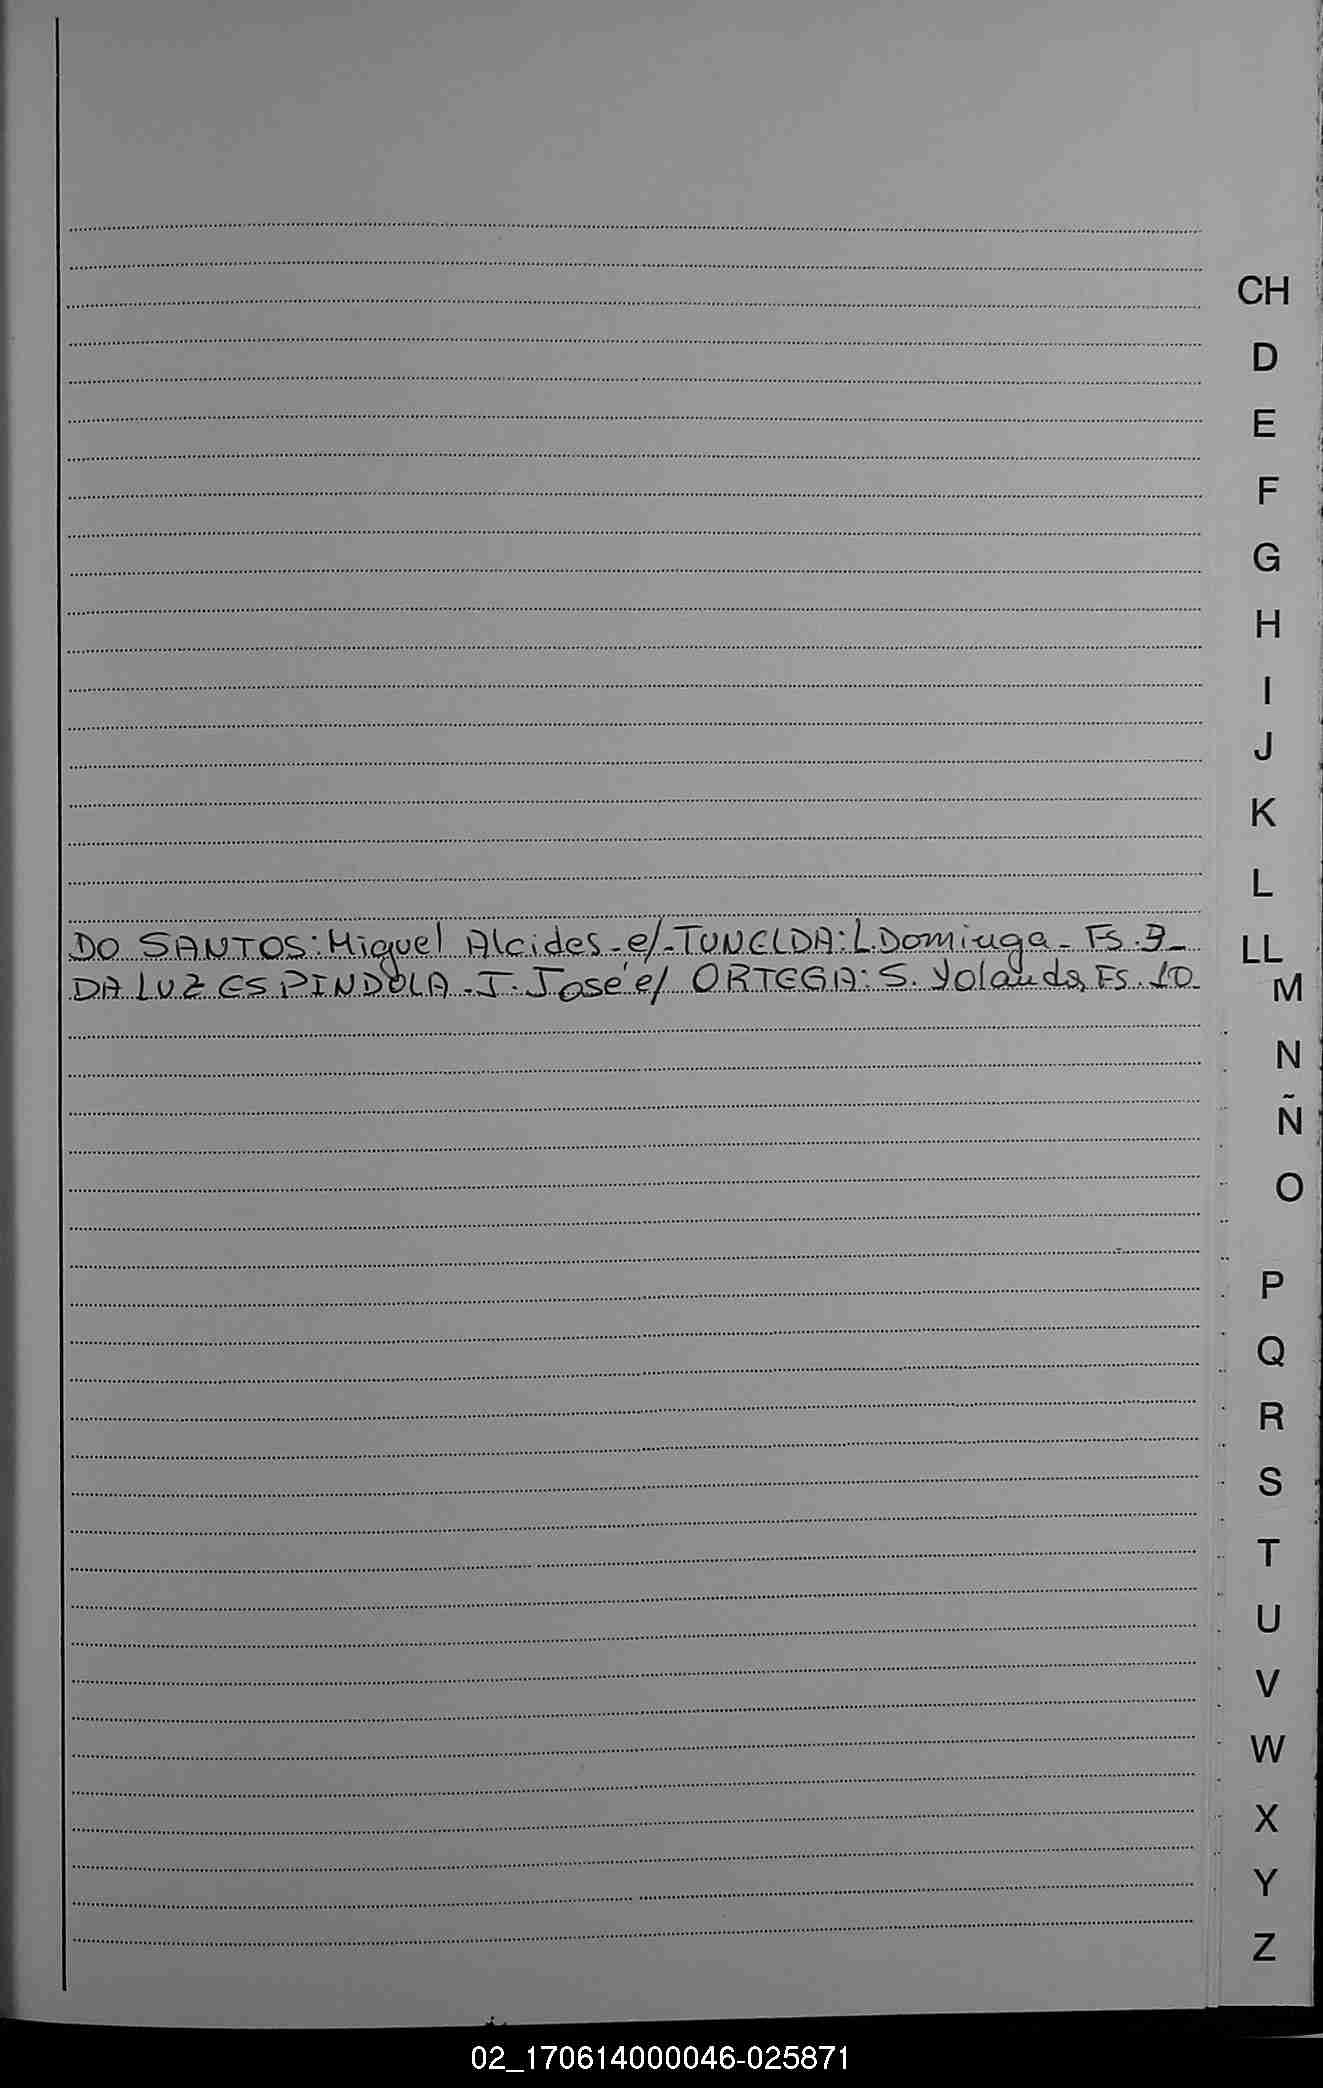 CH
D
E
F
G
H
I
J
K
L
DO SANTOS: Miguel Alcides - e/- TUNELDA: L. Dominga - Fs. 9 -
LL
DA LUZ ESPINDOLA - J. José e/ ORTEGA: S. Yolanda, Fs. 10
M
N
Ñ
O
P
Q
R
S
T
U
V
W
X
Y
Z
02_170614000046-025871